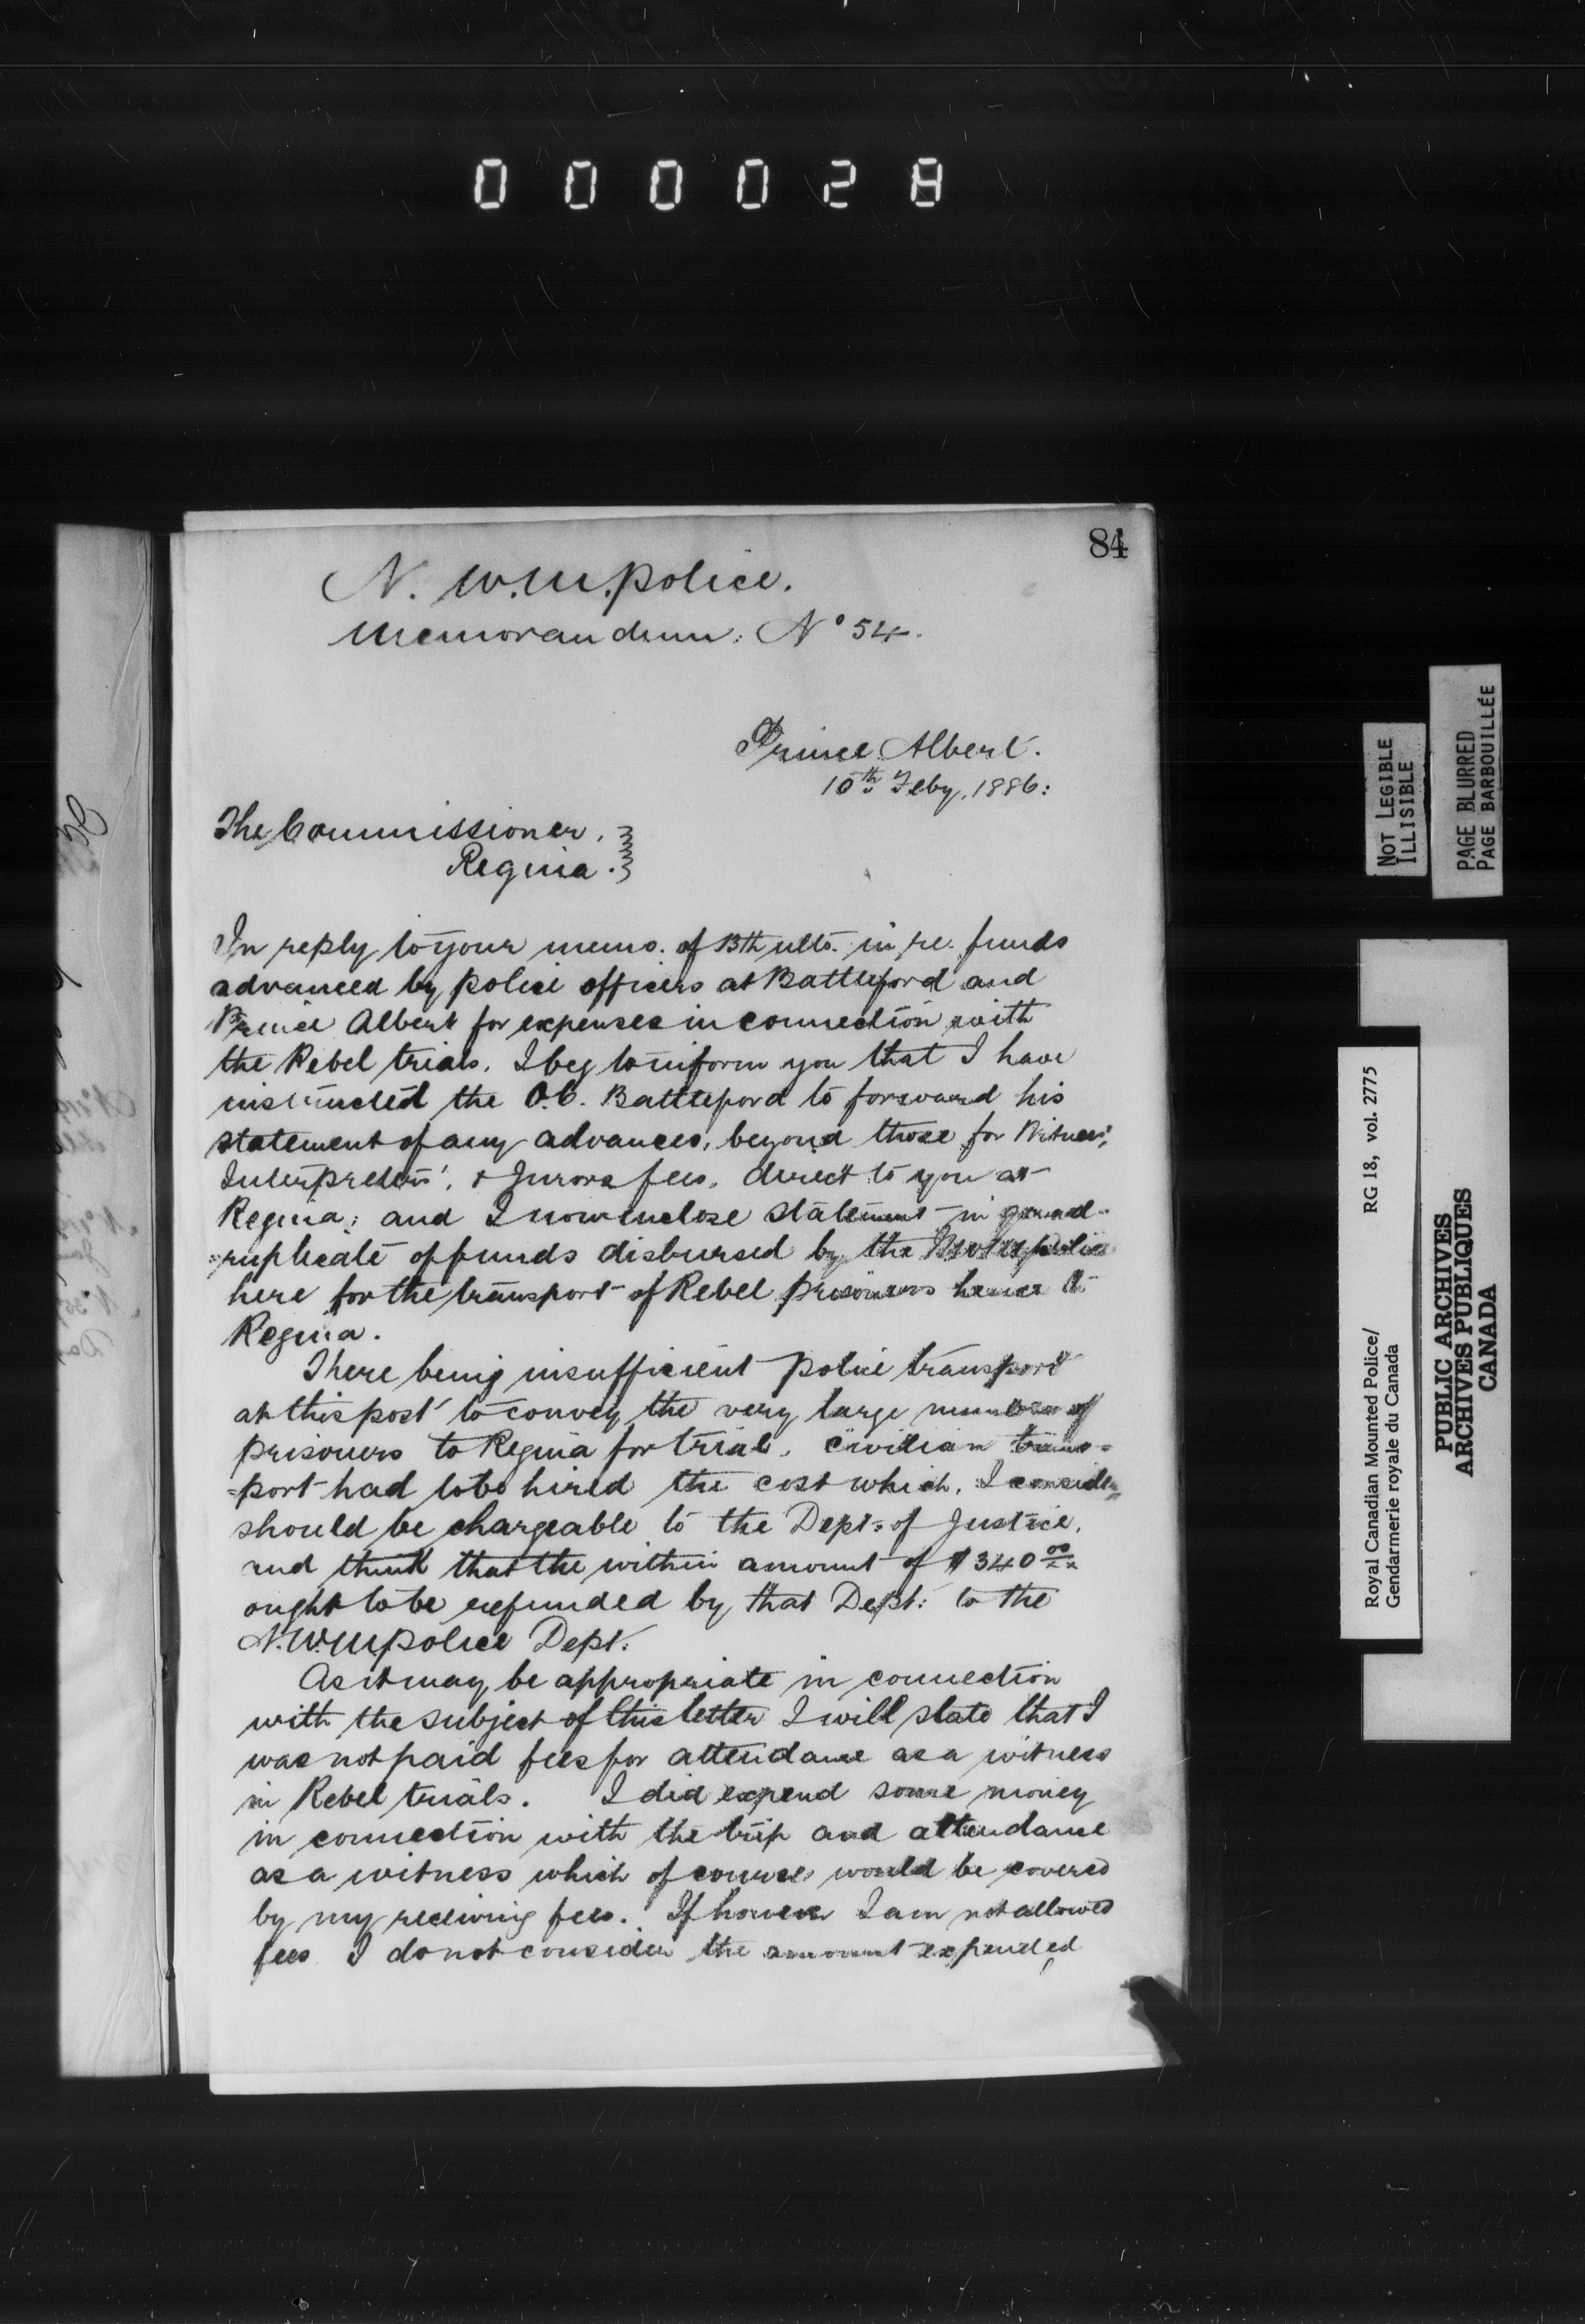 000028
84
N. W. M. Police.
Memorandum: No 54.
Prince Albert.
10th Feby. 1886:
The Commissioner,
Regina.
In reply to your memo. of 13th ulto. in re. funds
advanced by police officers at Battleford and
Prince Albert for expenses in connection with
the Rebel trials. I beg to inform you that I have
instructed the O.C. Battleford to forward his
statement of any advances, beyond those for Witness',
Interpreters', & Jurors fees, direct to you at
Regina; and I now enclose statement in quad-
=ruplicate of funds disbursed by the N.W.M. police
here for the transport of Rebel prisoners hence to
Regina.
There being insufficient police transport
at this post to convey the very large number of
prisoners to Regina for trial, civilian trans=
=port had to be hired the cost which, I consider,
should be chargeable to the Dept: of Justice,
and think that the within amount of $340 00/xx
ought to be refunded by that Dept: to the
N.W.M. police Dept:
As it may be appropriate in connection
with the subject of this letter I will state that I
was not paid fees for attendance as a witness
in Rebel trials. I did expend some money
in connection with the trip and attendance
as a witness which of course would be covered
by my receiving fees. If however I am not allowed
fees I do not consider the amount expended
NOT LEGIBLE
ILLISIBLE
PAGE BLURRED
PAGE BARBOUILLÉE
Royal Canadian Mounted Police/ RG 18, vol. 2775
Gendarmerie royale du Canada
PUBLIC ARCHIVES
ARCHIVES PUBLIQUES
CANADA